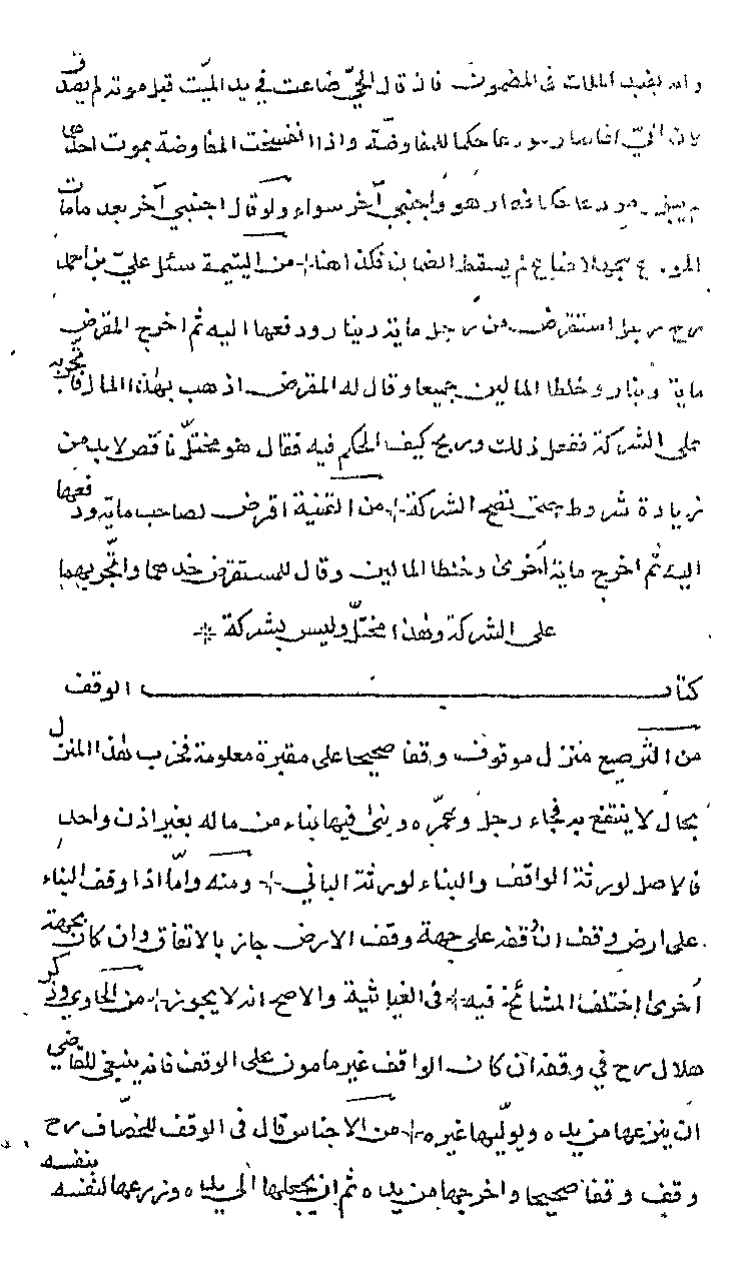 وانه بقيد الملك في المضمون فان قال الحيّ ضاعت في يد الميّت قبل موته لم يصدّق
لان الحيّ حكما للمفاوضة واذا انفسخت المفاوضة بموت احدهما
هو واجنبي آخر سواء ولو قال اجنبي آخر بعد مامات
المودع لم يسقط الضمان فكذا هنا من اليتيمة سئل عليّ بن احمد
رح عن رجل استقرض من رجل ماية دينار ودفعها اليه ثم اخرج المقرض
ماية دينار وخلطا المالين جميعا وقال له المقرض اذهب بهذا المال فاتّجر به
على الشركة ففعل ذلك وربح كيف الحكم فيه فقال هو مختلّ ناقص لا بد من
زيادة شروط حتى تصح الشركة من القنية اقرض لصاحبه ماية ودفعها
اليه ثم اخرج ماية اخرى وخلطا المالين وقال للمستقرض خذهما واتّجر بهما
على الشركة وهذا مختلّ وليس بشركة
كتاب الوقف
من الترصيع منزل موقوف وقفا صحيحا على مقبرة معلومة فخرب هذا المنزل
بحال لا ينتفع به فجاء رجل وعمّره وبنى فيها بناء من ماله بغير اذن واحد
فالاصل لورثة الواقف والبناء لورثة الباني ومنه وامّا اذا وقف البناء
على ارض وقف ان وقفه على جهة وقف الارض جاز بالاتفاق وان كان بجهة
اخرى اختلف المشائخ فيه في الغياثية والاصح انه لا يجوز من الحاوي وذكر
هلال رح في وقفه ان كان الواقف غير مامون على الوقف فانه ينبغي للقاضي
ان ينزعها من يده ويولّيها غيره من الاجناس قال في الوقف للخصّاف رح
وقف وقفا صحيحا واخرجها من يده ثم ان يجعلها الى يده وزرعها لنفسه بنفسه